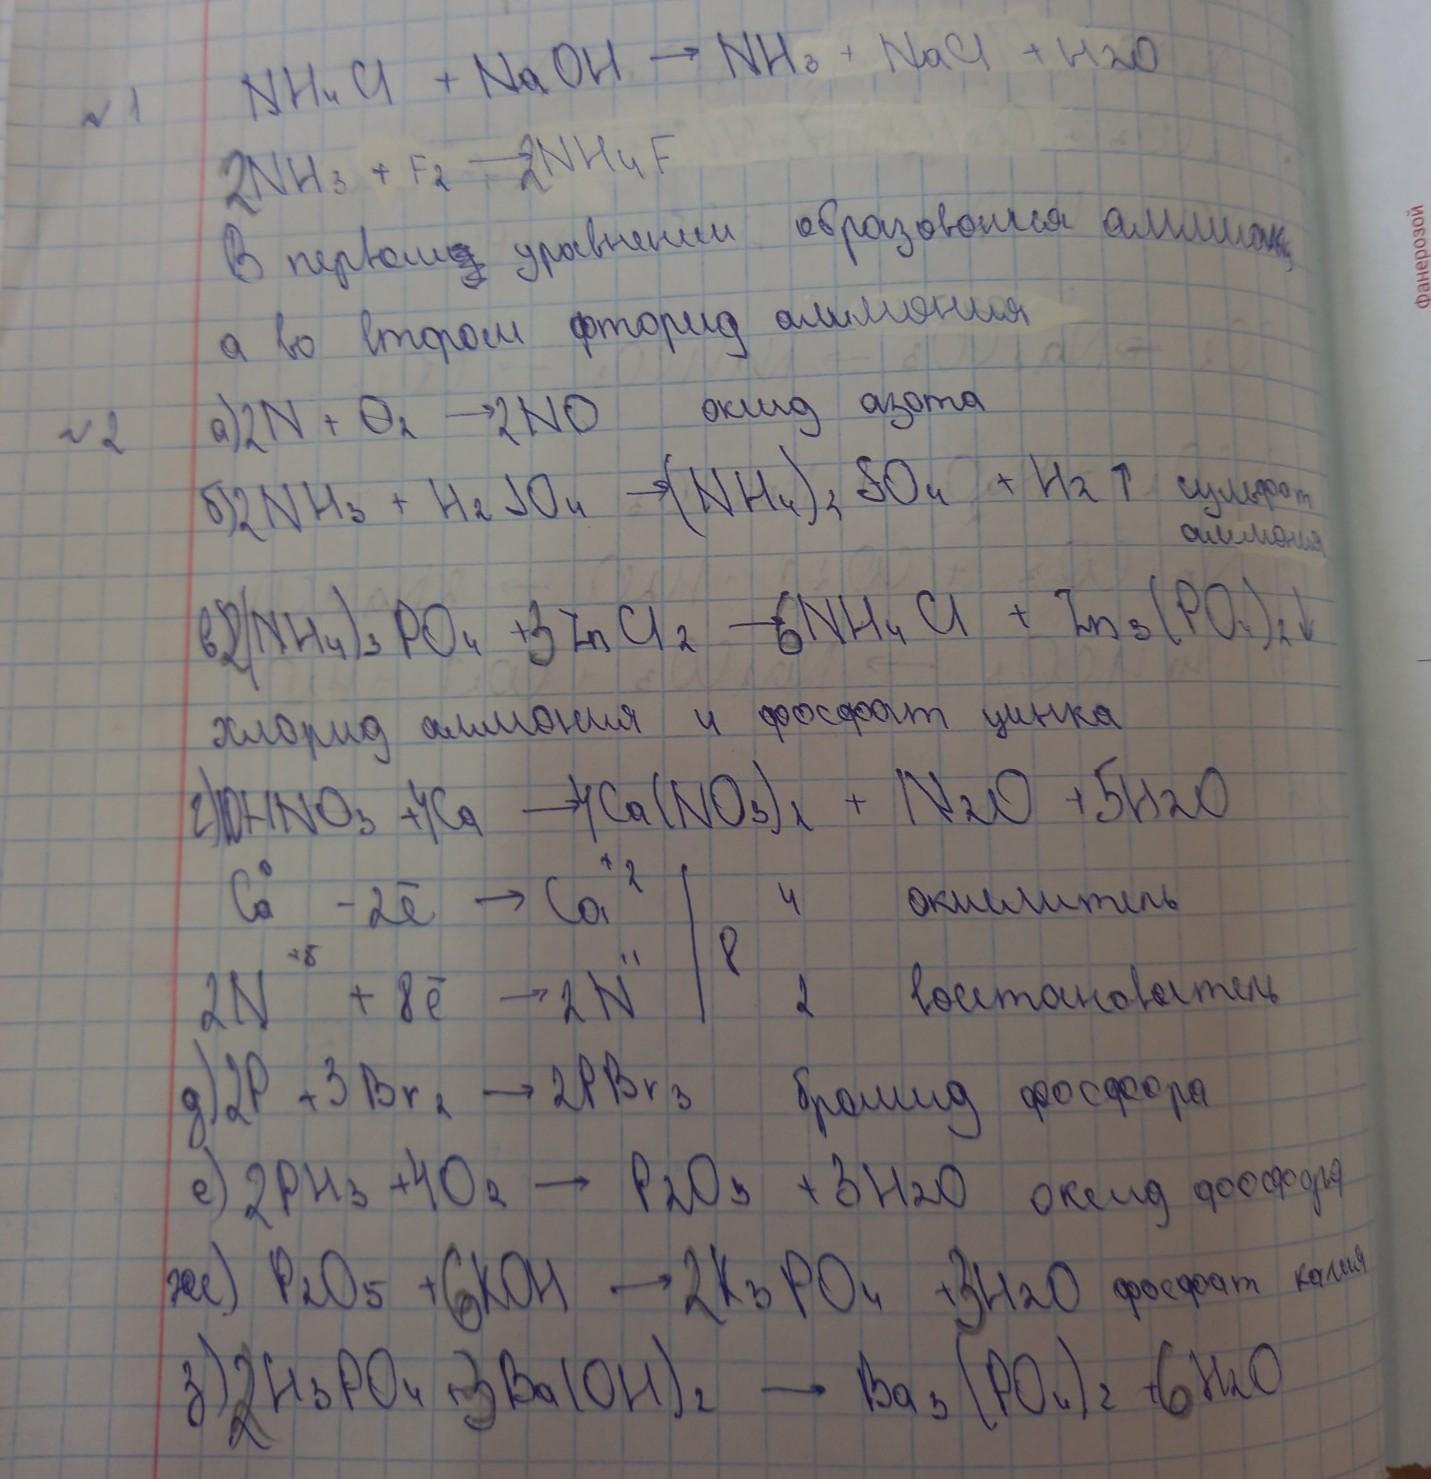 №1 NH₄Cl + NaOH → NH₃ + NaCl + H2O
2NH₃ + F₂ → 2NH₄F
В первом уравнении образовался аммиак,
а во втором фторид аммония
№2 а) 2N + O₂ → 2NO оксид азота
б) 2NH₃ + H₂SO₄ → (NH₄)₂SO₄ + H₂↑ сульфат
аммония
в) 2(NH₄)₃PO₄ + 3ZnCl₂ → 6NH₄Cl + Zn₃(PO₄)₂↓
хлорид аммония и фосфат цинка
г) 10HNO₃ + 4Ca → 4Ca(NO₃)₂ + N₂O + 5H2O
Ca⁰ - 2ē → Ca⁺² | 4 окислитель
8
2N⁺⁵ + 8ē → 2N⁺¹ | 2 восстановитель
д) 2P + 3Br₂ → 2PBr₃ бромид фосфора
е) 2PH₃ + 4O₂ → P₂O₃ + 3H2O оксид фосфора
ж) P₂O₅ + 6KOH → 2K₃PO₄ + 3H2O фосфат калия
з) 2H₃PO₄ + 3Ba(OH)₂ → Ba₃(PO₄)₂ + 6H2O
Фанерозой